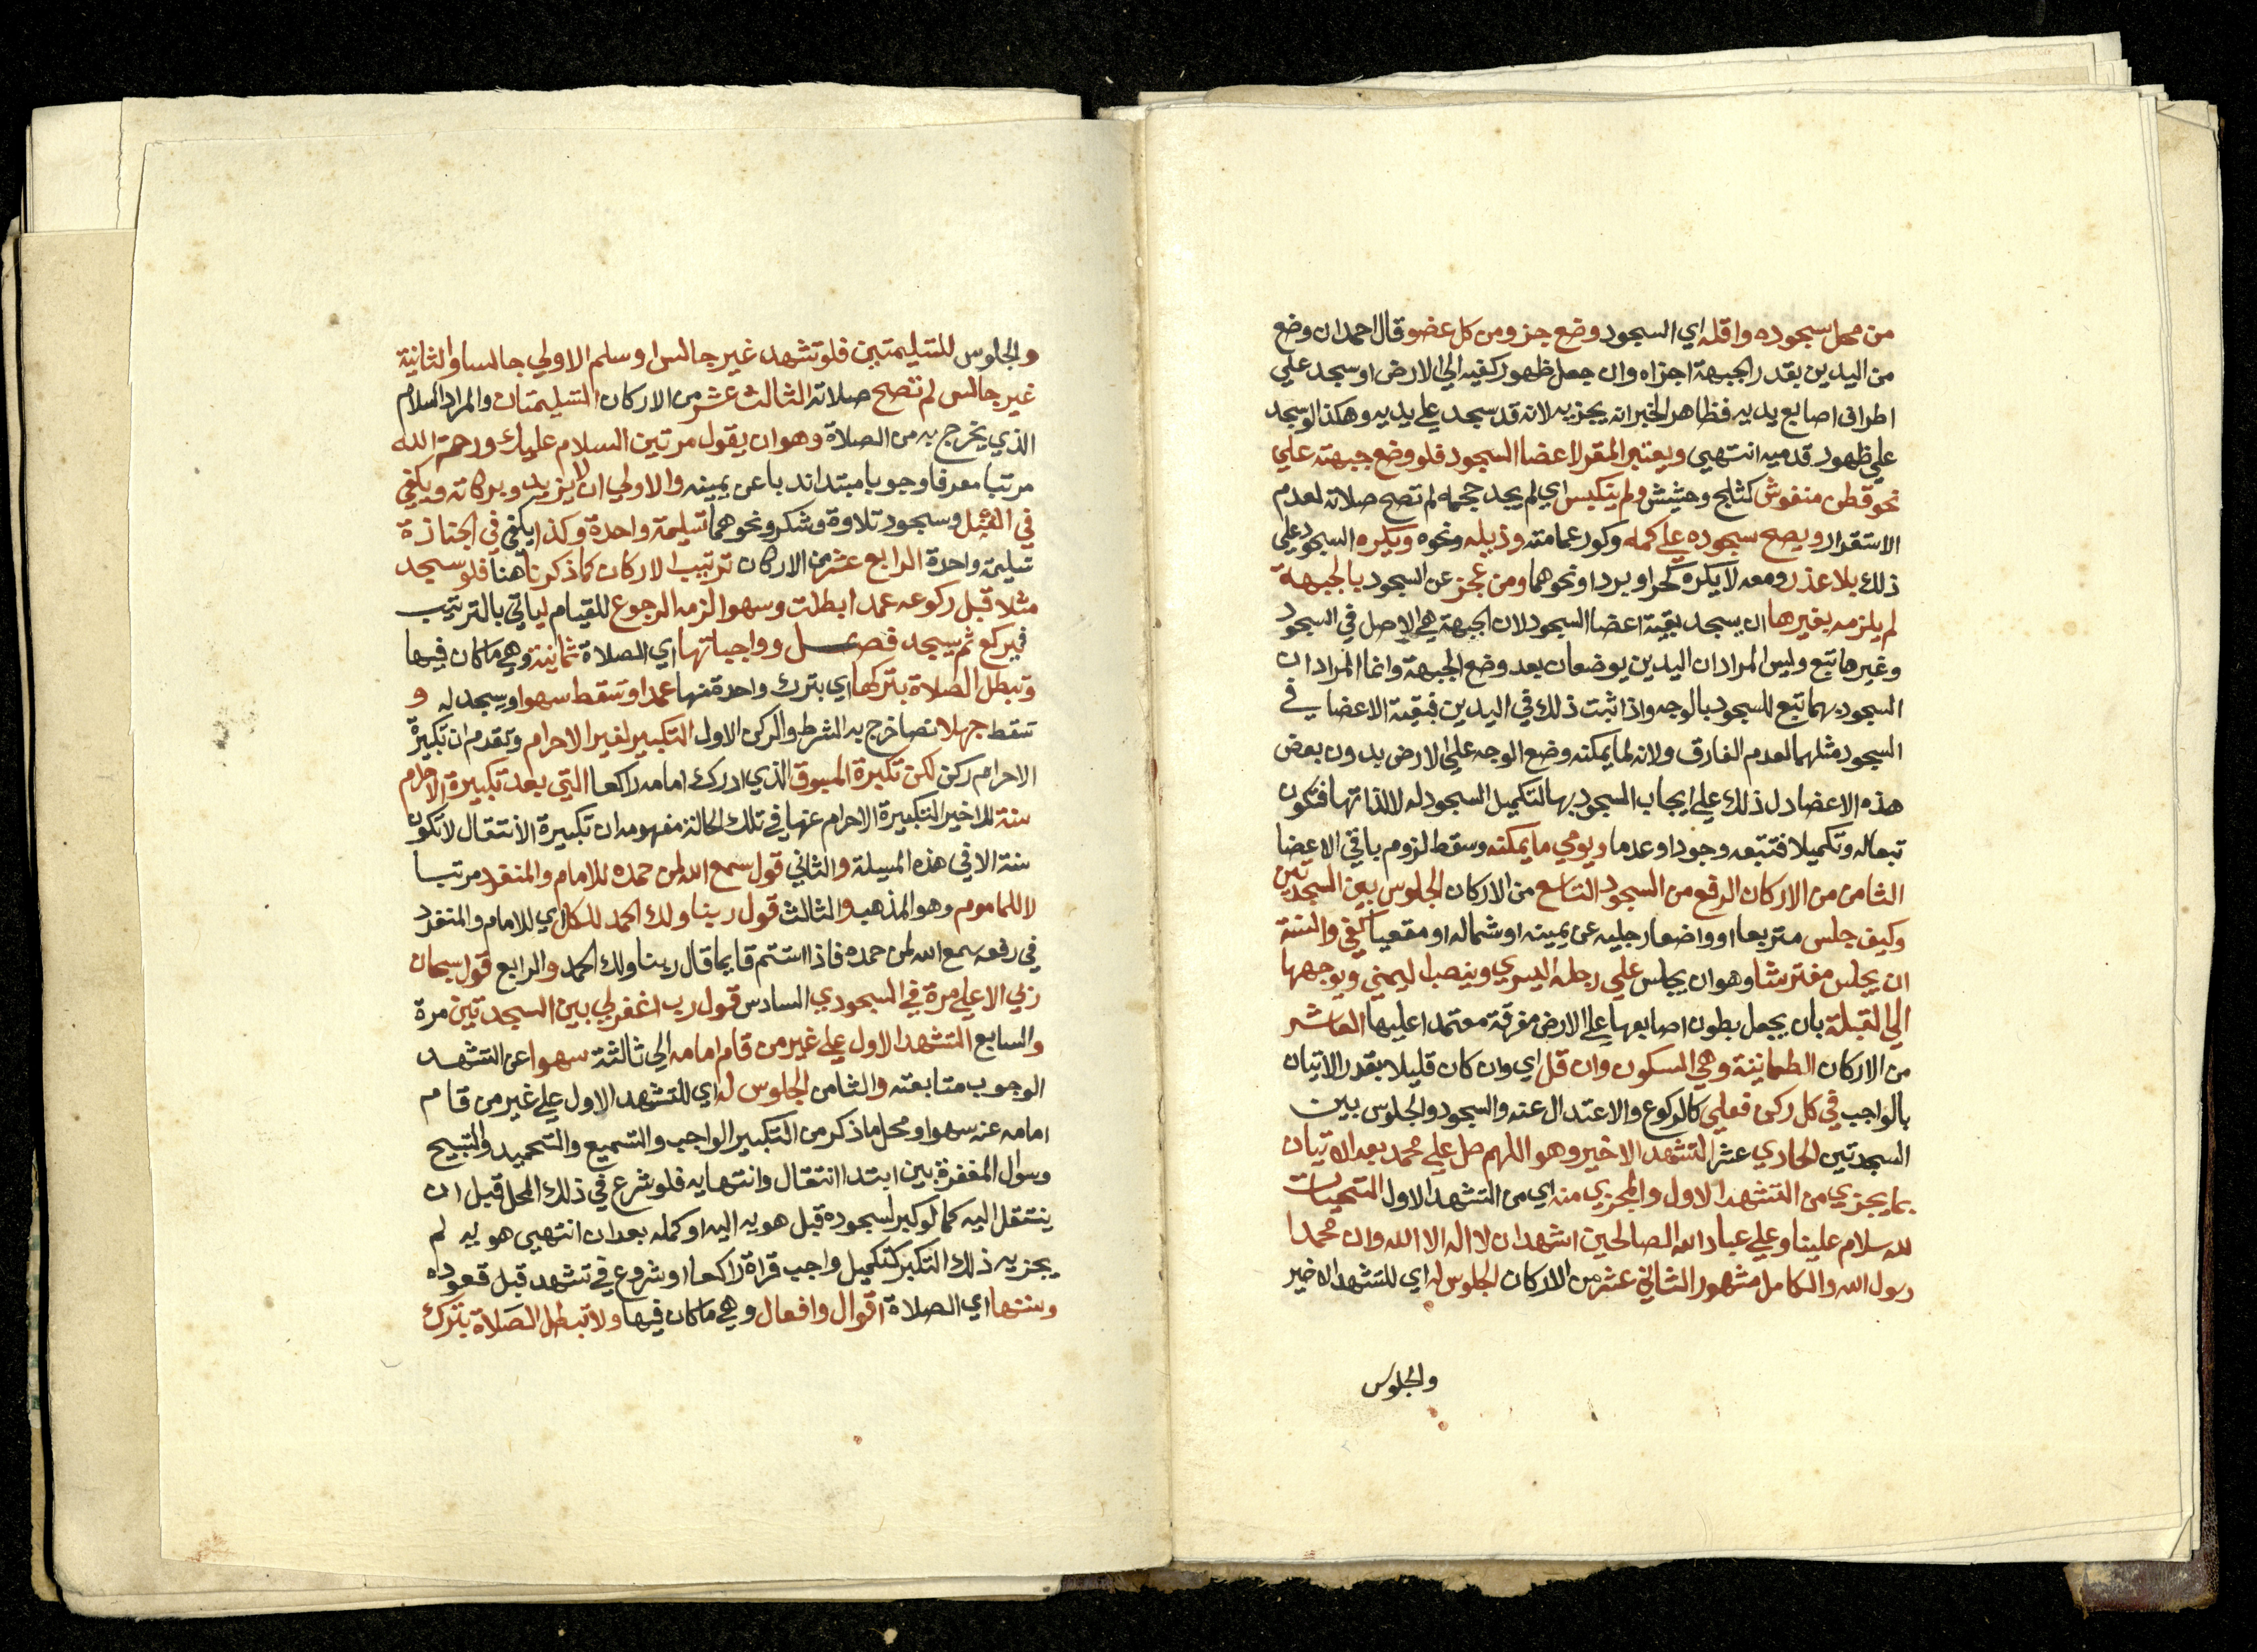 من محل سجوده واقله اي السجود وضع جزو من كل عضو قال احمد ان وضع
من اليدين بقدر الجبهة اجزاه وان جعل ظهور كفيه الي الارض او سجد علي
اطراف اصابع يديه فظاهر الخبر انه يجزيه لانه قد سجد علي يديه وهكذا لو سجد
علي ظهور قدميه انتهي ويعتبر المقر لاعضا السجود فلو وضع جبهته علي
نحو قطن منفوش كثلج وحشيش ولم ينكبس اي لم يجد حجمه لم تصح صلاته لعدم
الاستقرار ويصح سجوده علي كمه وكور عمامته وذيله ونحوه ويكره السجود علي
ذلك بلا عذر ومعه لا يكره كحر او برد او نحوهما ومن عجز عن السجود بالجبهة
لم يلزمه بغيرها ان يسجد بقية اعضا السجود لان الجبهة هي الاصل في السجود
وغيرها تبع وليس المراد ان اليدين يوضعان بعد وضع الجبهة وانما المراد ان
السجود بهما تبع للسجود بالوجه واذا ثبت ذلك في اليدين فبقية الاعضا في
السجود مثلهما لعدم الفارق ولانه لما يمكنه وضع الوجه علي الارض بدون بعض
هذه الاعضا دل ذلك علي ايجاب السجود بها لتكميل السجود له لا لذاتها فتكون
تبعا له وتكميلا فتتبعه وجودا وعدما ويومي ما يمكنه وسقط لزوم باقي الاعضا
الثامن من الاركان الرفع من السجود التاسع من الاركان الجلوس بين السجدتين
وكيف جلس متربعا او واضعا رجليه عن يمينه او شماله او مقعيا كفي والسنة
ان يجلس مفترشا وهو ان يجلس علي رجله اليسري وينصب اليمني ويوجهها
الي القبلة بان يجعل بطون اصابعها علي الارض مفرقة معتمدا عليها العاشر
من الاركان الطمانينة وهي السكون وان قل اي وان كان قليلا بقدر الاتيان
بالواجب في كل ركن فعلي كالركوع والاعتدال عنه والسجود والجلوس بين
السجدتين الحادي عشر التشهد الاخير وهو اللهم صل علي محمد بعد الاتيان
بما يجزي من التشهد الاول والمجزي منه اي من التشهد الاول التحيات
لله سلام علينا وعلي عباد الله الصالحين اشهد ان لا اله الا الله وان محمدا
رسول الله والكامل مشهور الثاني عشر من الاركان الجلوس له اي للتشهد الاخير
والجلوس
والجلوس للتسليمتين فلو تشهد غير جالس او سلم الاولي جالسا والثانية
غير جالس لم تصح صلاته الثالث عشر من الاركان التسليمتان والمراد السلام
الذي يخرج به من الصلاة وهو ان يقول مرتين السلام عليك ورحمة الله
مرتبا معرفا وجوبا مبتدا ندبا عن يمينه والاولي ان لا يزيد وبركاته ويكفي
في النفل وسجود تلاوة وشكر ونحوهما تسليمة واحدة وكذا يكفي في الجنازة
تسليمة واحدة الرابع عشر من الاركان ترتيب الاركان كما ذكرنا هنا فلو سجد
مثلا قبل ركوعه عمدا بطلت وسهوا لزمه الرجوع للقيام لياتي بالترتيب
فيركع ثم يسجد فصل وواجباتها اي الصلاة ثمانية وهي ما كان فيها
وتبطل الصلاة بتركها اي بترك واحدة منها عمدا وتسقط سهوا ويسجد له و
تسقط جهلا نصا خرج به الشرط والركن الاول التكبير لغير الاحرام وتقدم ان تكبيرة
الاحرام ركن لكن تكبيرة المسبوق الذي ادرك امامه راكعا التي بعد تكبيرة الاحرام
سنة للاخير التكبيرة الاحرام عنها في تلك الحالة مفهومه ان تكبيرة الانتقال لا تكون
سنة الا في هذه المسيلة والثاني قول سمع الله لمن حمده للامام والمنفرد مرتبا
لا للماموم وهو المذهب والثالث قول ربنا ولك الحمد للكل اي للامام والمنفرد
في رفعه سمع الله لمن حمده فاذا استتم قايما قال ربنا ولك الحمد والرابع قول سبحان
ربي الاعلي مرة في السجودي السادس قول رب اغفر لي بين السجدتين مرة
والسابع التشهد الاول علي غير من قام امامه الي ثالثة سهوا عن التشهد
الوجوب متابعته والثامن الجلوس له اي للتشهد الاول علي غير من قام
امامه عنه سهوا ومحل ما ذكر من التكبير الواجب والتسميع والتحميد والتسبيح
وسوال المغفرة بين ابتدا انتقال وانتهايه فلو شرع في ذلك المحل قبل ان
ينتقل اليه كما لو كبر لسجوده قبل هويه اليه او كمله بعد ان انتهي هويه لم
يجزيه ذلك التكبر كتكميل واجب قراة راكعا او شروع في تشهد قبل قعوده
وسننها اي الصلاة اقوال وافعال وهي ما كان فيها ولا تبطل الصلاة بترك